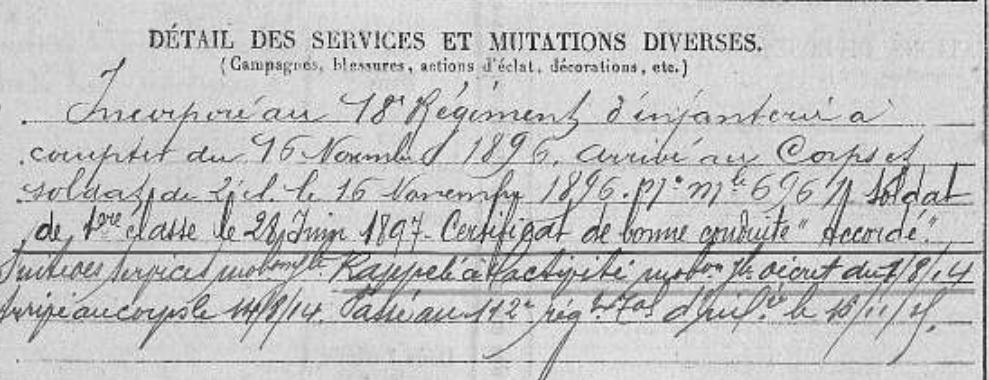 DÉTAIL DES SERVICES ET MUTATIONS DIVERSES.
(Campagnes, blessures, actions d'éclat, décorations, etc.)
Incorporé au 18e Régiment d'infanterie à
compter du 16 Novembre 1896. arrivé au Corps et
soldat de 2e cl. le 16 Novembre 1896. No Mle 6961 Soldat
de 1ère classe le 28 Juin 1897. Certificat de bonne conduite "Accordé".
Rappelé à l'activité décret du 1/8/14
arrivé au corps le 14/8/14. Passé au 112e rég. d'inf.ie le